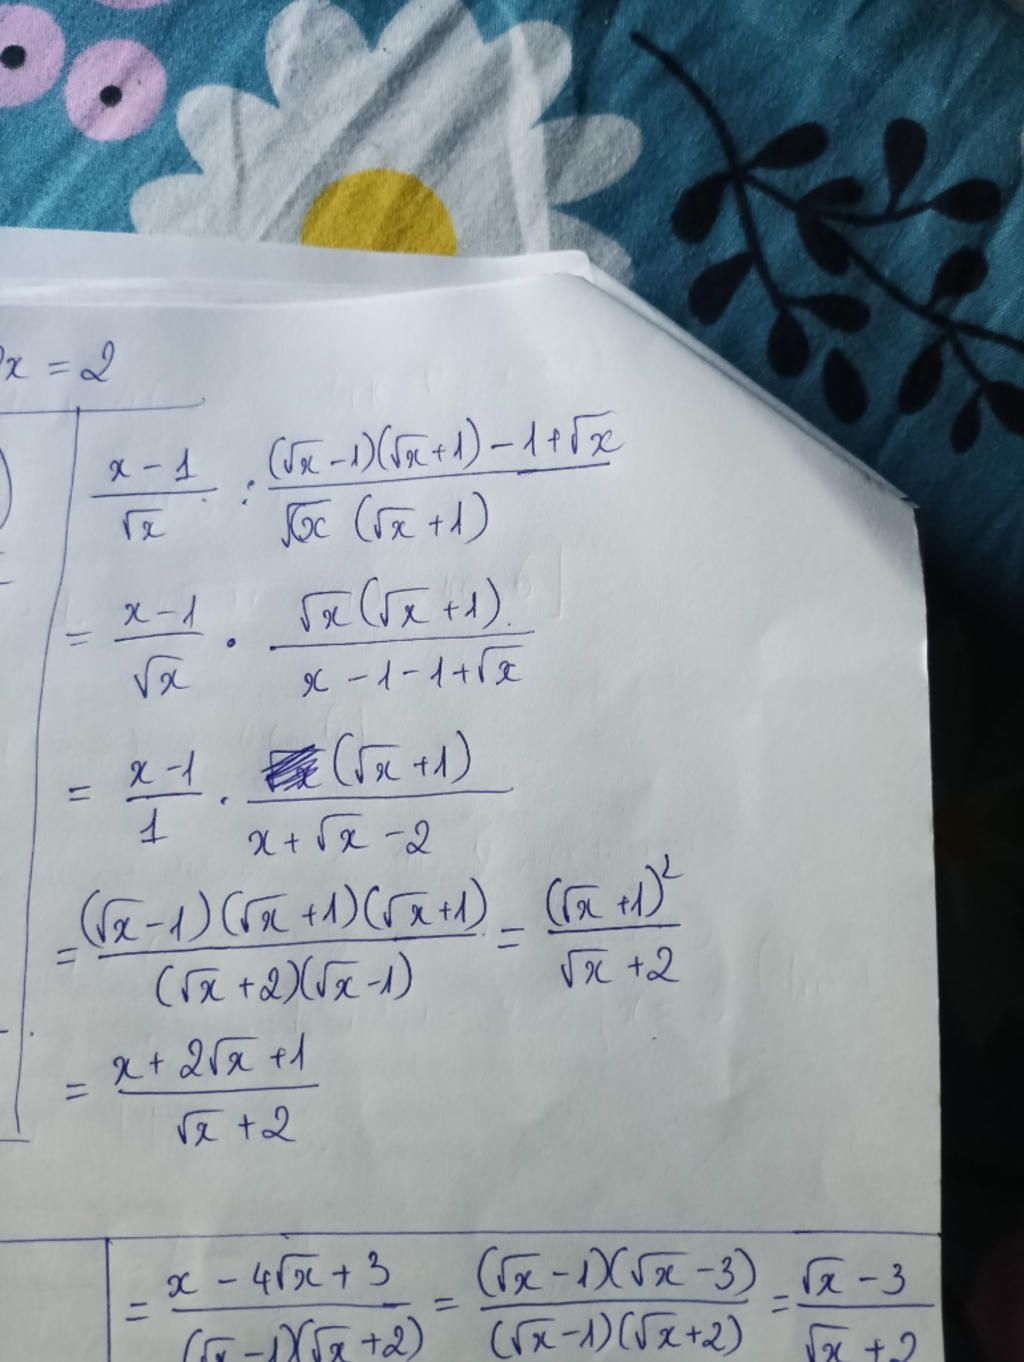 x = 2
(x - 1)/√x : ((√x - 1)(√x + 1) - 1 + √x)/(√x (√x + 1))
= (x - 1)/√x · (√x(√x + 1))/(x - 1 - 1 + √x)
= (x - 1)/1 · (√x + 1)/(x + √x - 2)
= ((√x - 1)(√x + 1)(√x + 1))/((√x + 2)(√x - 1)) = (√x + 1)²/(√x + 2)
= (x + 2√x + 1)/(√x + 2)
= (x - 4√x + 3)/((√x - 1)(√x + 2)) = ((√x - 1)(√x - 3))/((√x - 1)(√x + 2)) = (√x - 3)/(√x + 2)